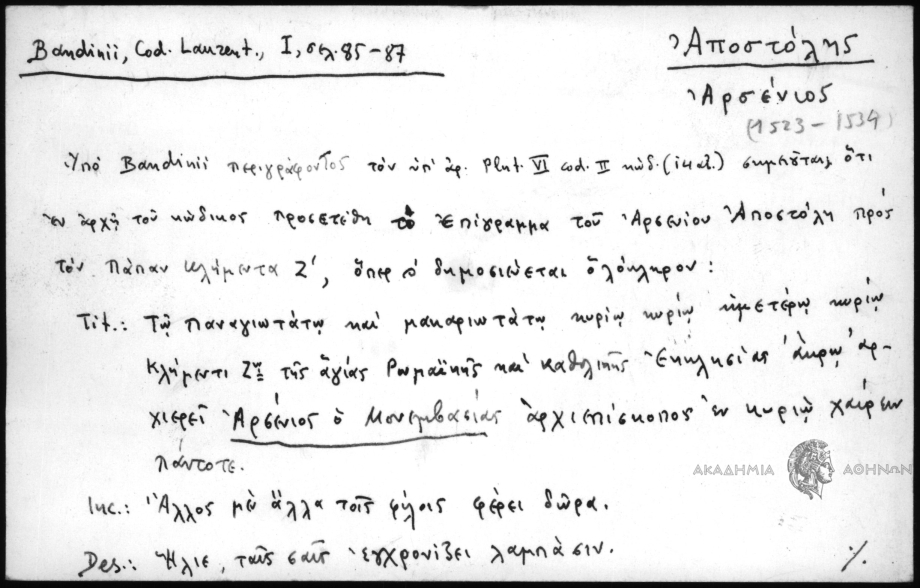 Bandinii, Cod. Laurent., I, σελ. 85-87
Ἀποστόλης
Ἀρσένιος
(1523-1534)
Ὑπὸ Bandinii περιγράφοντος τὸν ὑπ' ἀρ. Plut. VI cod. II κώδ. (ιη αἰ.) σημειοῦται, ὅτι
ἐν ἀρχῇ τοῦ κώδικος προσετέθη τὸ ἐπίγραμμα τοῦ Ἀρσενίου Ἀποστόλη πρὸς
τὸν Πάπαν Κλήμεντα Ζ', ὅπερ δημοσιεύεται ὁλόκληρον:
Tit.: Τῷ παναγιωτάτῳ καὶ μακαριωτάτῳ κυρίῳ κυρίῳ ἡμετέρῳ κυρίῳ
Κλήμεντι Ζῳ τῆς ἁγίας Ρωμαϊκῆς καὶ καθολικῆς Ἐκκλησίας ἄκρῳ ἀρ-
χιερεῖ Ἀρσένιος ὁ Μονεμβασίας ἀρχιεπίσκοπος ἐν κυρίῳ χαίρειν
πάντοτε.
Inc.: Ἄλλος μὲν ἄλλα τοῖς φίλοις φέρει δῶρα.
Des.: Ἥλιε, ταῖς σαῖς ἐγχρονίζει λαμπάσιν.
ΑΚΑΔΗΜΙΑ ΑΘΗΝΩΝ
./.